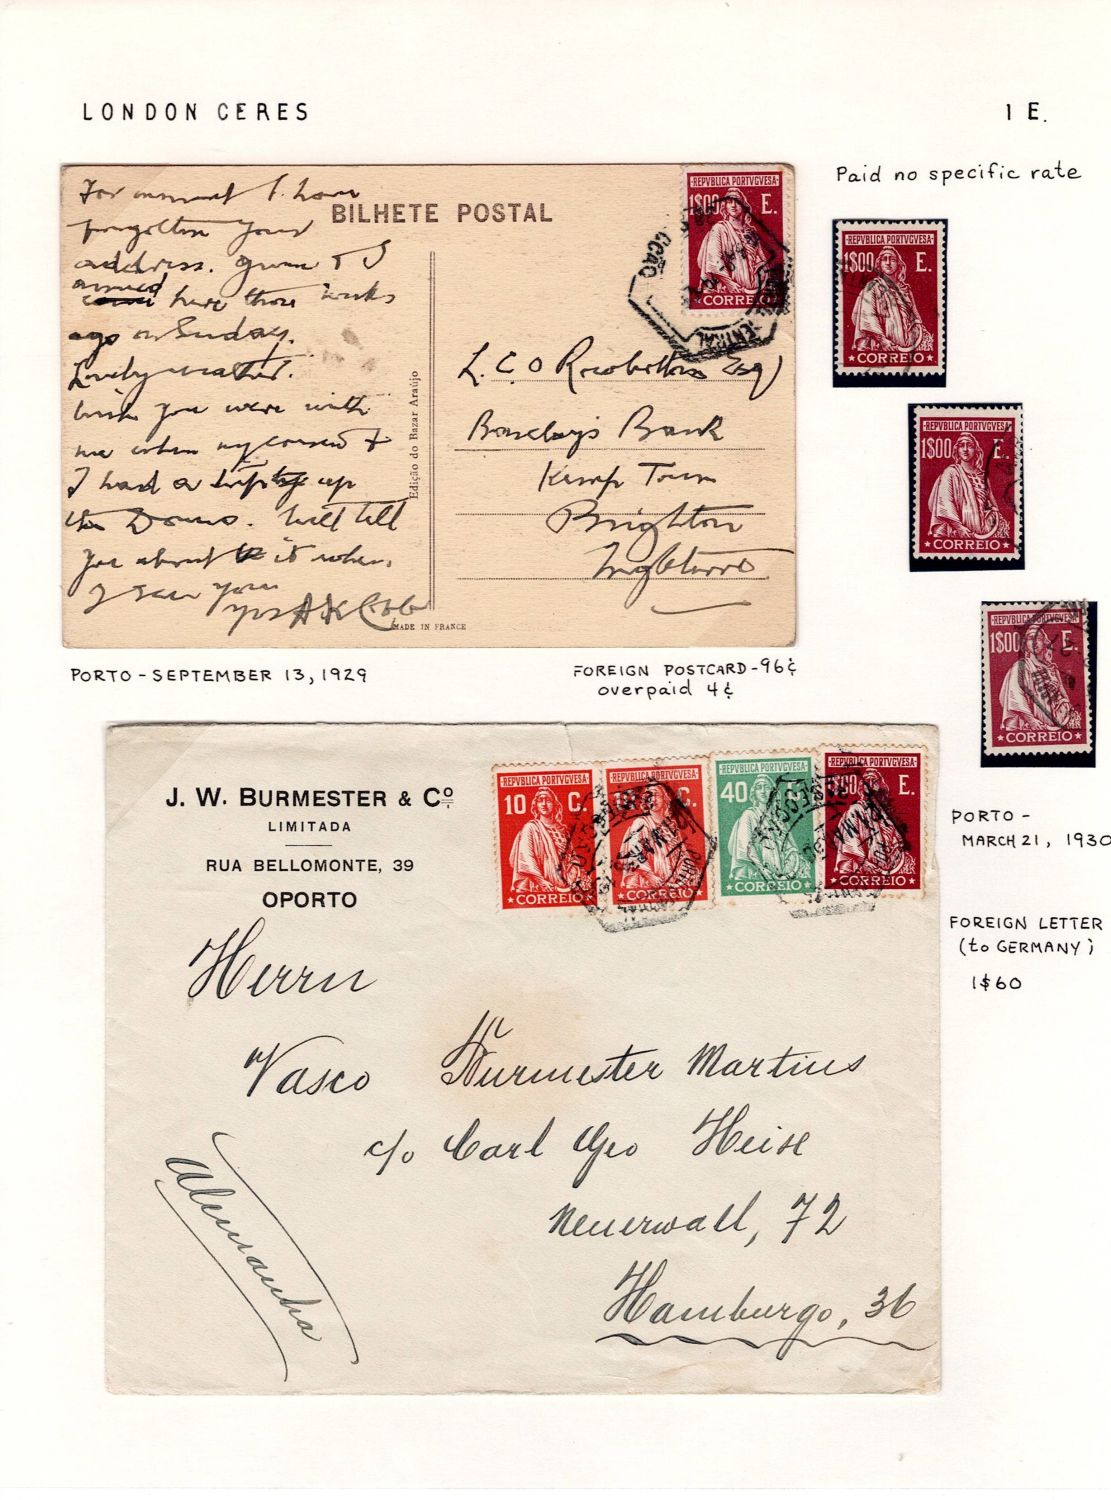 LONDON CERES
1 E.
Paid no specific rate
BILHETE POSTAL
For moment I have
forgotten your
address.
here three weeks
ago on Sunday.
Lovely weather.
wish you were with
me when my cousin &
I had a trip up
the Douro. Will tell
you about it when
I see you
Yrs A K Cobb
Edição do Bazar Araújo
MADE IN FRANCE
REPVBLICA PORTVGVESA
1$00 E.
CORREIO
CENTRAL
L. C. O Esq
Barclays Bank
Kemp Town
Brighton
Inglaterra
REPVBLICA PORTVGVESA
1$00 E.
CORREIO
REPVBLICA PORTVGVESA
1$00 E.
CORREIO
REPVBLICA PORTVGVESA
1$00 E.
CORREIO
PORTO - SEPTEMBER 13, 1929
FOREIGN POSTCARD - 96¢
overpaid 4¢
J. W. BURMESTER & Cº
LIMITADA
RUA BELLOMONTE, 39
OPORTO
REPVBLICA PORTVGVESA
10 C.
CORREIO
REPVBLICA PORTVGVESA
10 C.
CORREIO
REPVBLICA PORTVGVESA
40
CORREIO
REPVBLICA PORTVGVESA
1$00 E.
CORREIO
PORTO -
MARCH 21, 1930
FOREIGN LETTER
(to GERMANY)
1$60
Herrn
Vasco Burmester Martins
c/o Carl Geo Heise
Neuerwall, 72
Hamburgo, 36
Alemanha